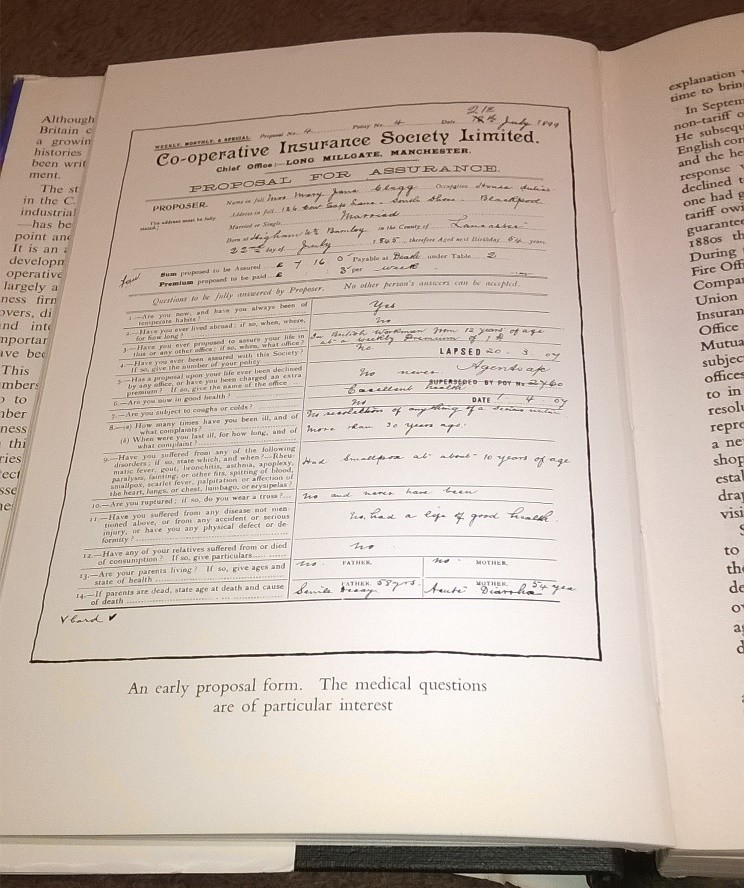 Although
Britain
a growin
histories
been writ
ment.
The st
in the C
industrial
—has be
point and
It is an
developm
operative
largely a
ness firm
overs, di
and into
mportan
ave bee
This
mbers
to
mber
ness
thi
ries
tect
21st
July 1899
WEEKLY, MONTHLY, & SPECIAL. Proposal No. 4 Policy No. 4 Date
Co-operative Insurance Society Limited.
Chief Office:—LONG MILLGATE, MANCHESTER.
PROPOSAL FOR ASSURANCE.
PROPOSER. Name in full Mrs Mary Jane Clegg Occupation House duties
Address in full South Shore Blackpool
Married or Single Married
Born at in the County of Lancashire
22nd day of July 1845, therefore Aged next Birthday 54 years
Sum proposed to be Assured £ 7 16 0 Payable at Death under Table 2
Premium proposed to be paid £ 3 per week
Questions to be fully answered by Proposer. No other person's answers can be accepted.
1.—Are you now, and have you always been of temperate habits? Yes
2.—Have you ever lived abroad; if so, when, where, for how long? no
3.—Have you ever proposed to assure your life in this or any other office; if so, when, what office? In British Workman from 12 years of age at a weekly Premium of 1d
4.—Have you ever been assured with this Society? If so, give the number of your policy no
LAPSED 20. 3. 07
5.—Has a proposal upon your life ever been declined by any office, or have you been charged an extra premium? If so, give the name of the office No never
SUPERSEDED BY POY No 2760
6.—Are you now in good health? Excellent health
DATE 1 4 07
7.—Are you subject to coughs or colds? No
8.—(a) How many times have you been ill, and of what complaints? No recollection of anything of a serious nature
(b) When were you last ill, for how long, and of what complaint? more than 30 years ago
9.—Have you suffered from any of the following disorders; if so, state which, and when?—Rheumatic fever, gout, bronchitis, asthma, apoplexy, paralysis, fainting, or other fits, spitting of blood, smallpox, scarlet fever, palpitation or affection of the heart, lungs, or chest, lumbago, or erysipelas? Had Smallpox at about 10 years of age
10.—Are you ruptured; if so, do you wear a truss? no and never have been
11.—Have you suffered from any disease not mentioned above, or from any accident or serious injury, or have you any physical defect or deformity? No, had a life of good health
12.—Have any of your relatives suffered from or died of consumption? If so, give particulars no
13.—Are your parents living? If so, give ages and state of health no FATHER. no MOTHER.
14.—If parents are dead, state age at death and cause of death FATHER. 58 yrs. Senile Decay MOTHER. 54 yrs Acute Diarrhoea
Card
An early proposal form. The medical questions
are of particular interest
explanation
time to brin
In Septem
non-tariff o
He subsequ
English com
and the he
response
declined t
one had g
tariff owi
guarantee
1880s th
During
Fire Off
Compa
Union
Insuran
Office
Mutua
subjec
offices
to in
resol
repre
a ne
shop
estal
dra
visi
to
the
de
o
a
d